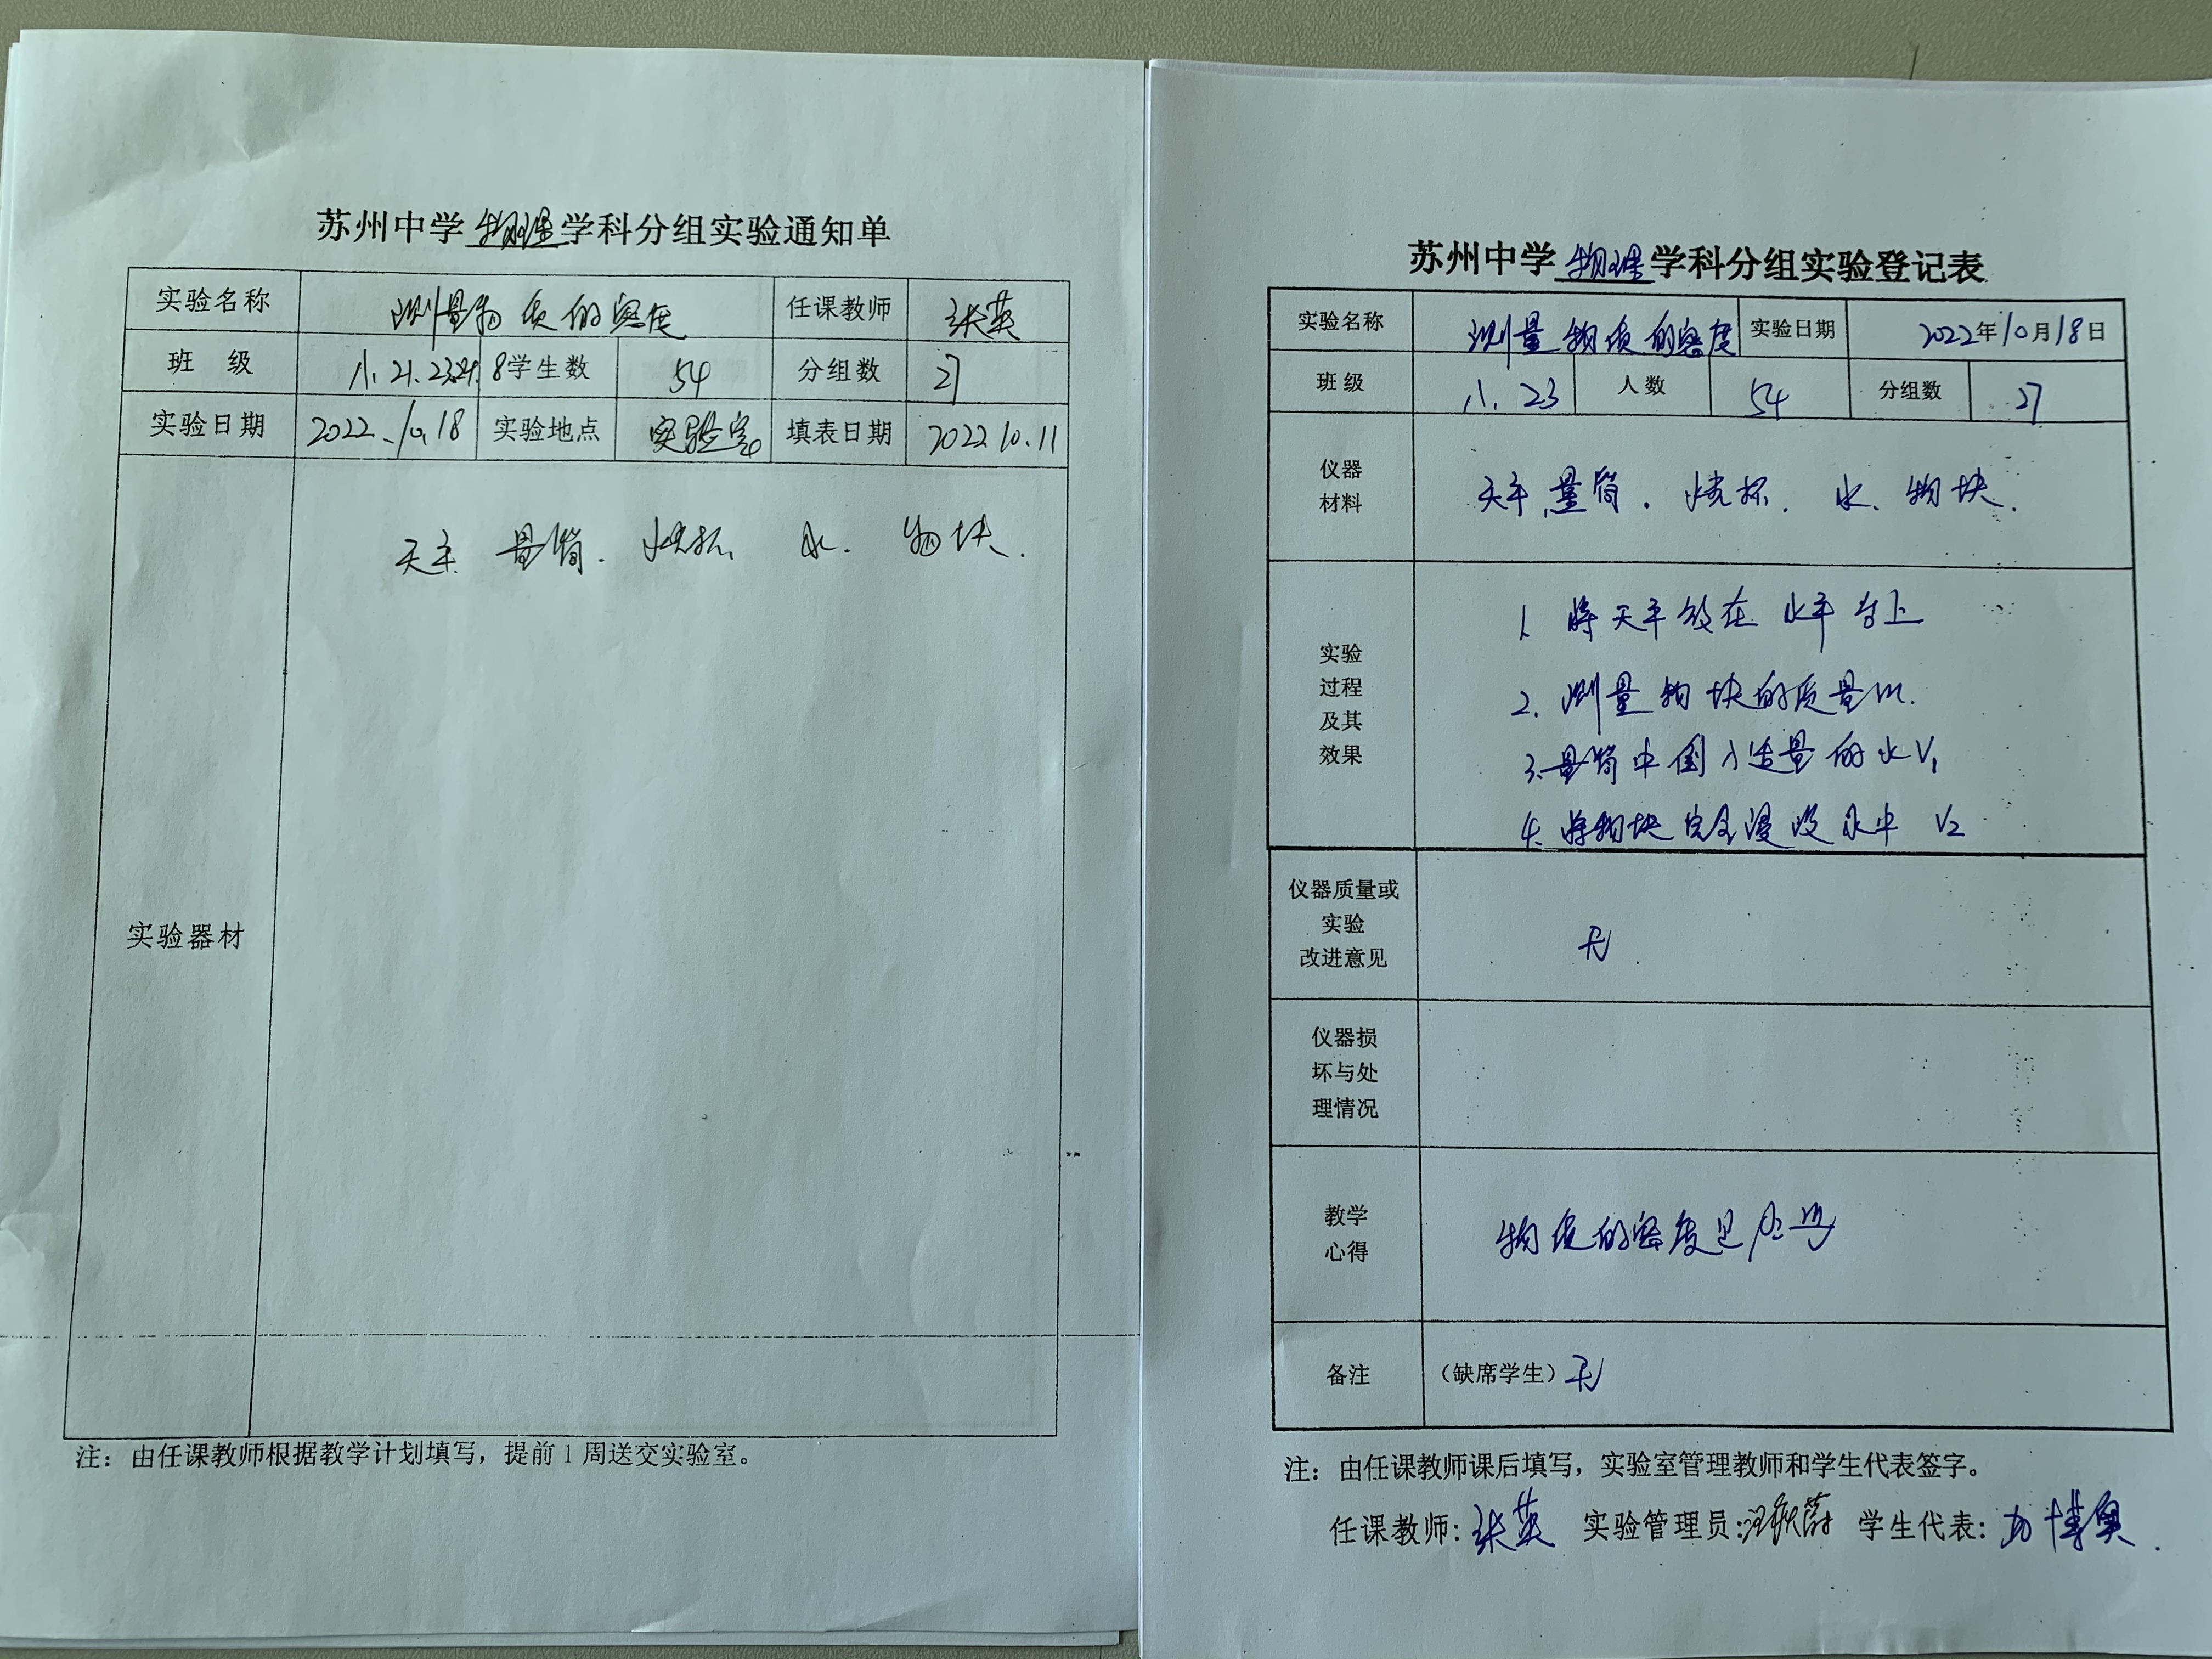 苏州中学物理学科分组实验通知单
实验名称 测量物质的密度 任课教师 张英
班 级 八.21.23.24.8 学生数 54 分组数 27
实验日期 2022.10.18 实验地点 实验室 填表日期 2022 10.11
实验器材 天平 量筒. 烧杯. 水. 物块.
注：由任课教师根据教学计划填写，提前1周送交实验室。
苏州中学物理学科分组实验登记表
实验名称 测量物质的密度 实验日期 2022年10月18日
班级 八.23 人数 54 分组数 27
仪器
材料
天平.量筒. 烧杯. 水. 物块.
实验
过程
及其
效果
1. 将天平放在水平台上
2. 测量物块的质量m.
3.量筒中倒入适量的水V1
4. 将物块完全浸没水中 V2
仪器质量或
实验
改进意见
无.
仪器损
坏与处
理情况
教学
心得
物质的密度是
备注
（缺席学生）无
注：由任课教师课后填写，实验室管理教师和学生代表签字。
任课教师：张英 实验管理员： 学生代表：